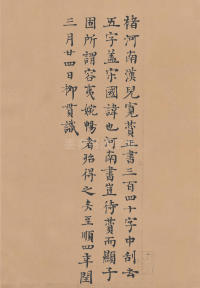 褚河南漢兒寬贊正書三百四十字中刮去
五字蓋宋國諱也河南書豈待贊而顯子
固所謂容夷婉暢者殆得之矣至順四年閏
三月廿四日柳貫識